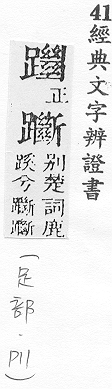 41經典文字辨證書
正
躖
別楚詞鹿
蹊兮躖躖
(足部．P11)